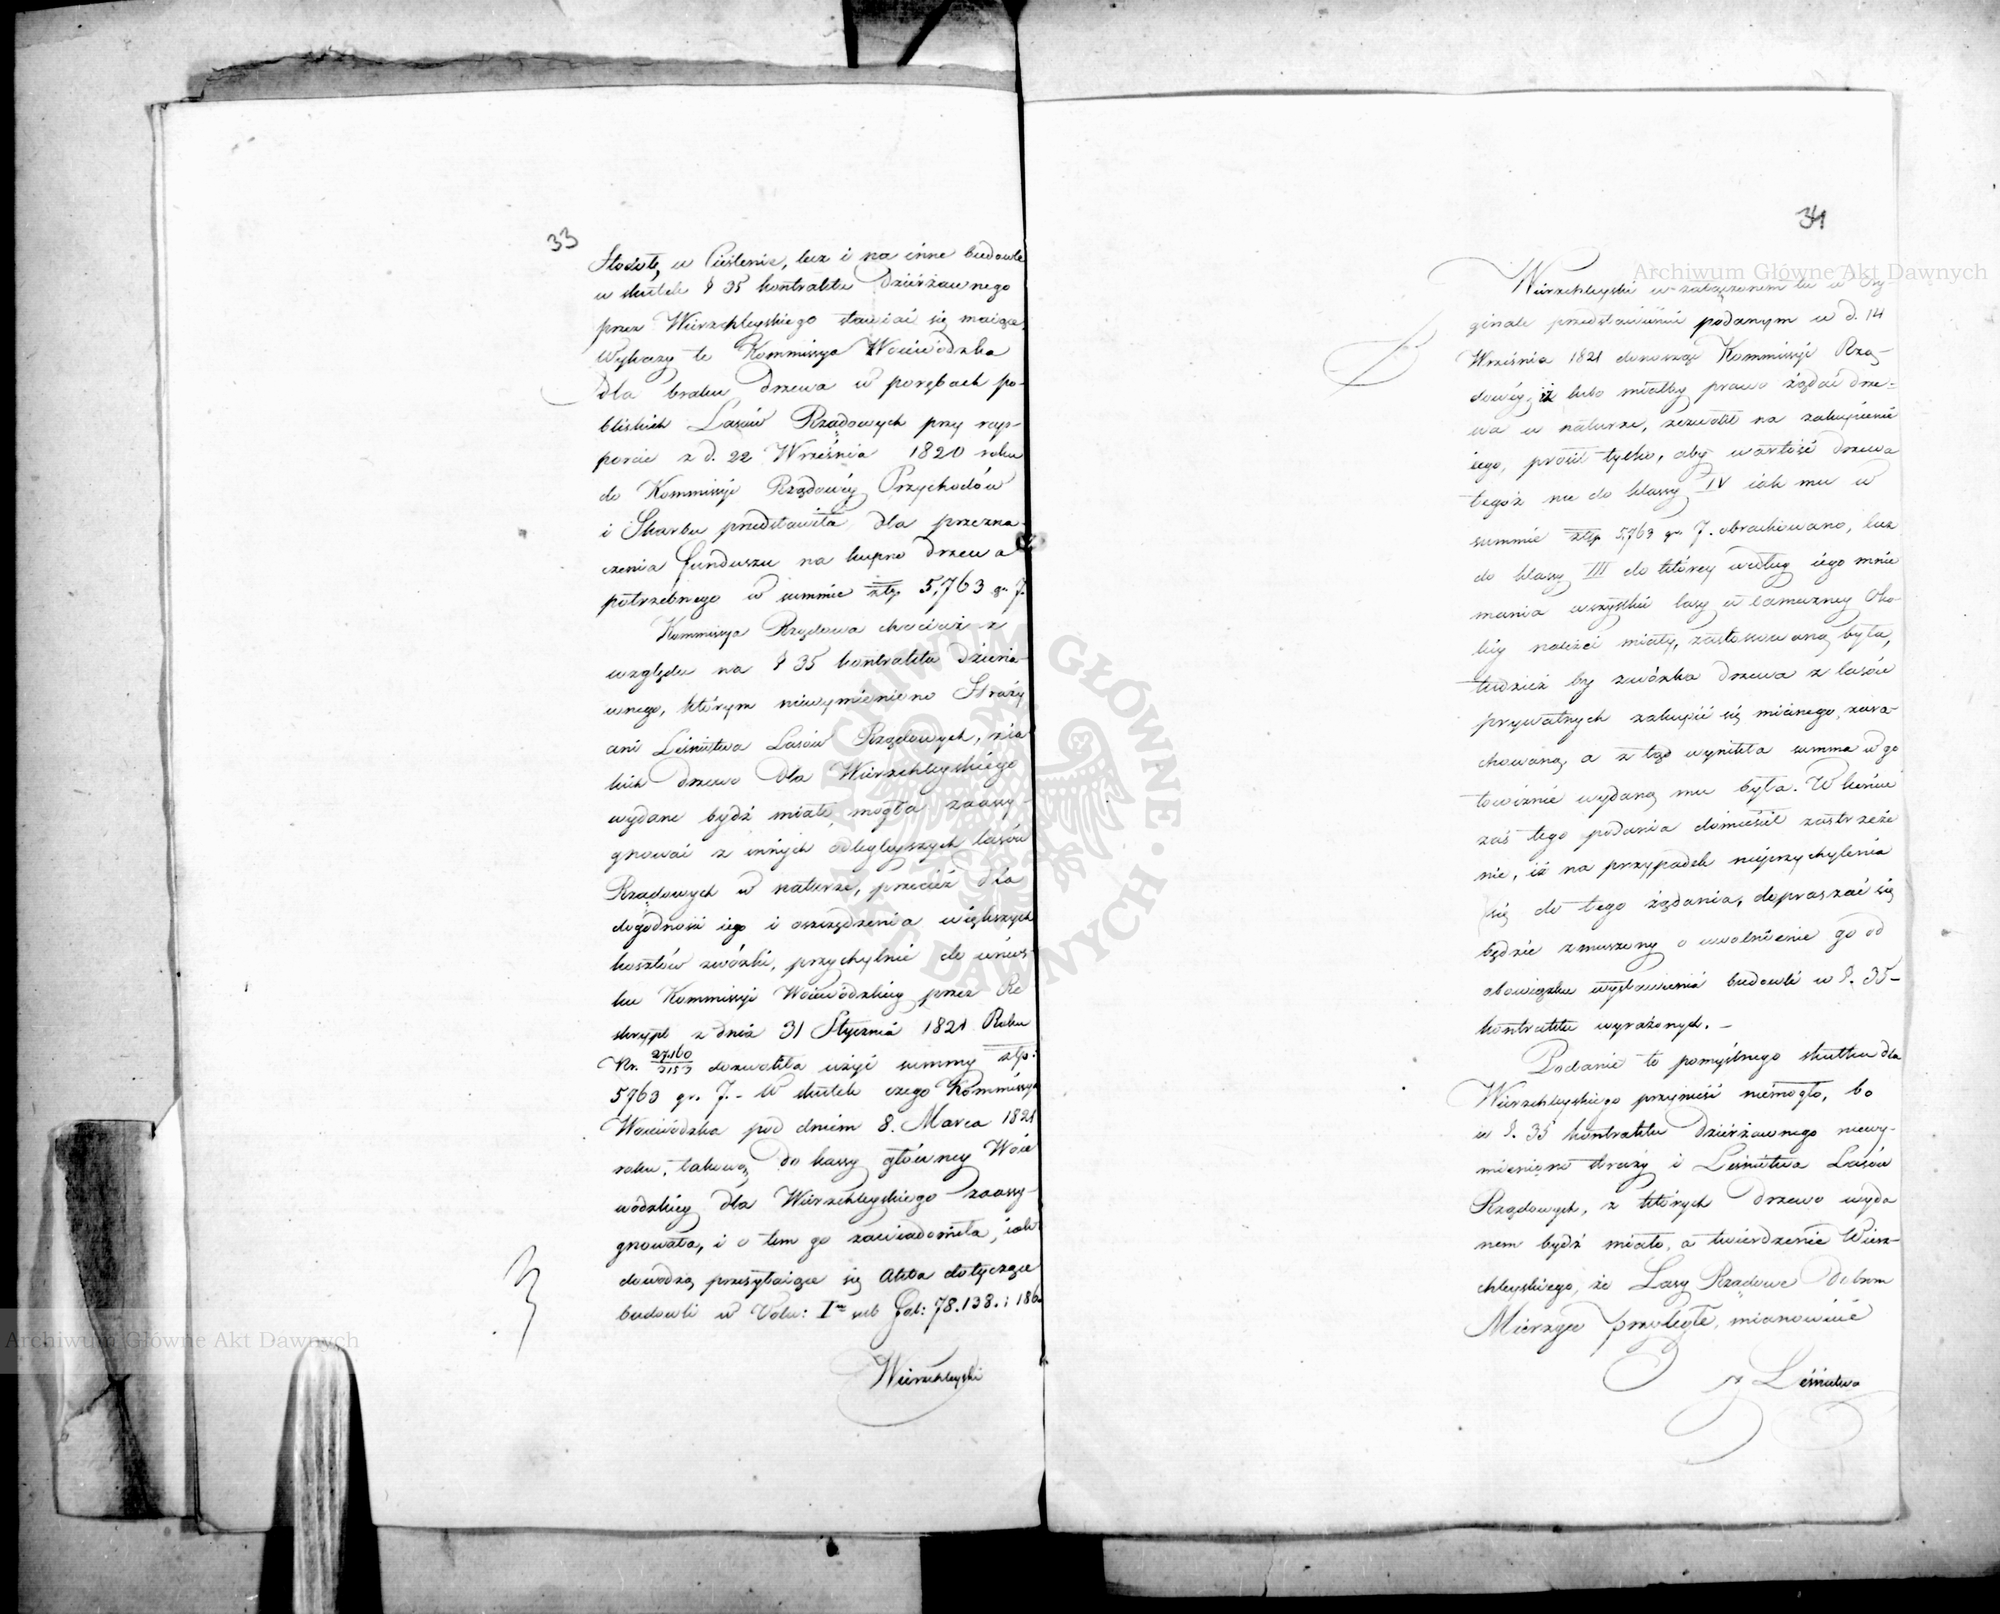 33
Stodołę w Cieślenie, lecz i na inne budowle
w skutek § 35 kontraktu Dzierżawnego
przez Wierzchleyskiego stawiać się maiące.
Wykazy te Kommissya Woiewódzka
dla braku drzewa w porębach po-
bliskich Lasów Rządowych przy rap-
porcie z d. 22 Września 1820 roku
do Kommissyi Rządowéy Przychodów
i Skarbu przedstawiła dla przezna-
czenia funduszu na kupno drzewa
potrzebnego w summie złp 5,763 gr 7.
Kommissya Rządowa chociaż z
względu na § 35 kontraktu dzierża-
wnego, którym niewymieniono Straży
ani Leśnictwa Lasów Rządowych, z ia-
kich drzewo dla Wierzchleyskiego
wydane bydź miało, mogła zaassy-
gnować z innych odległeyszych lasów
Rządowych w naturze, przecież dla
dogodności iego i oszczędzenia większych
kosztów zwózki, przychylnie do wnios-
ku Kommissyi Woiewódzkiey przez Re
skrypt z dnia 31 Stycznia 1821 Roku
Nr. 27160/3153 dozwoliła użyć summy złp:
5763 gr. 7. - W skutek czego Kommissya
Woiewódzka pod dniem 8. Marca 1821
roku, takową do kassy główney Woie
wódzkiéy dla Wierzchleyskiego zaassy-
gnowała, i o tem go zawiadomiła, iak
dowodzą przesyłaiące się Akta dotyczące
budowli w Volu: I^m sub fol: 78. 138. i 186.
Wierzchleyski
34
Wierzchleyski w załączonem tu w Ory-
ginale przedstawieniu podanym w d. 14
Września 1821 donosząc Kommissyi Rzą-
dowéy, iż lubo miałby prawo żądać drze-
wa w naturze, zezwolił na zakupienie
iego, prosił tylko, aby wartość drzewa
tegoż nie do klassy IV iak mu w
summie złp 5763 gr. 7. obrachowano, lecz
do klassy III do którey według iego mnie
mania wszystkie lasy w tameczney Oko-
licy należeć miały, zastosowaną była,
tudzież by zwózka drzewa z lasów
prywatnych zakupić się mianego, zara-
chowaną, a z tąd wynikła summa w go
towiźnie wydaną mu była. W końcu
zaś tego podania domieścił zastrzeże
nie, iż na przypadek nieprzychylenia
się do tego żądania, dopraszać się
będzie zmuszony o uwolnienie go od
obowiązku wystawienia budowli w §. 35-
kontraktu wyrażonych. -
Podanie to pomyślnego skutku dla
Wierzchleyskiego przynieść niemogło, bo
w §. 35 kontraktu Dzierżawnego niewy-
mieniono straży i Leśnictwa Lasów
Rządowych, z których drzewo wyda
nem bydź miało, a twierdzenie Wierz-
chleyskiego, że Lasy Rządowe Dobrom
Mierzyn przyległe, mianowicie
Leśnictwa
Archiwum Główne Akt Dawnych
Archiwum Główne Akt Dawnych
ARCHIWUM GŁÓWNE AKT DAWNYCH